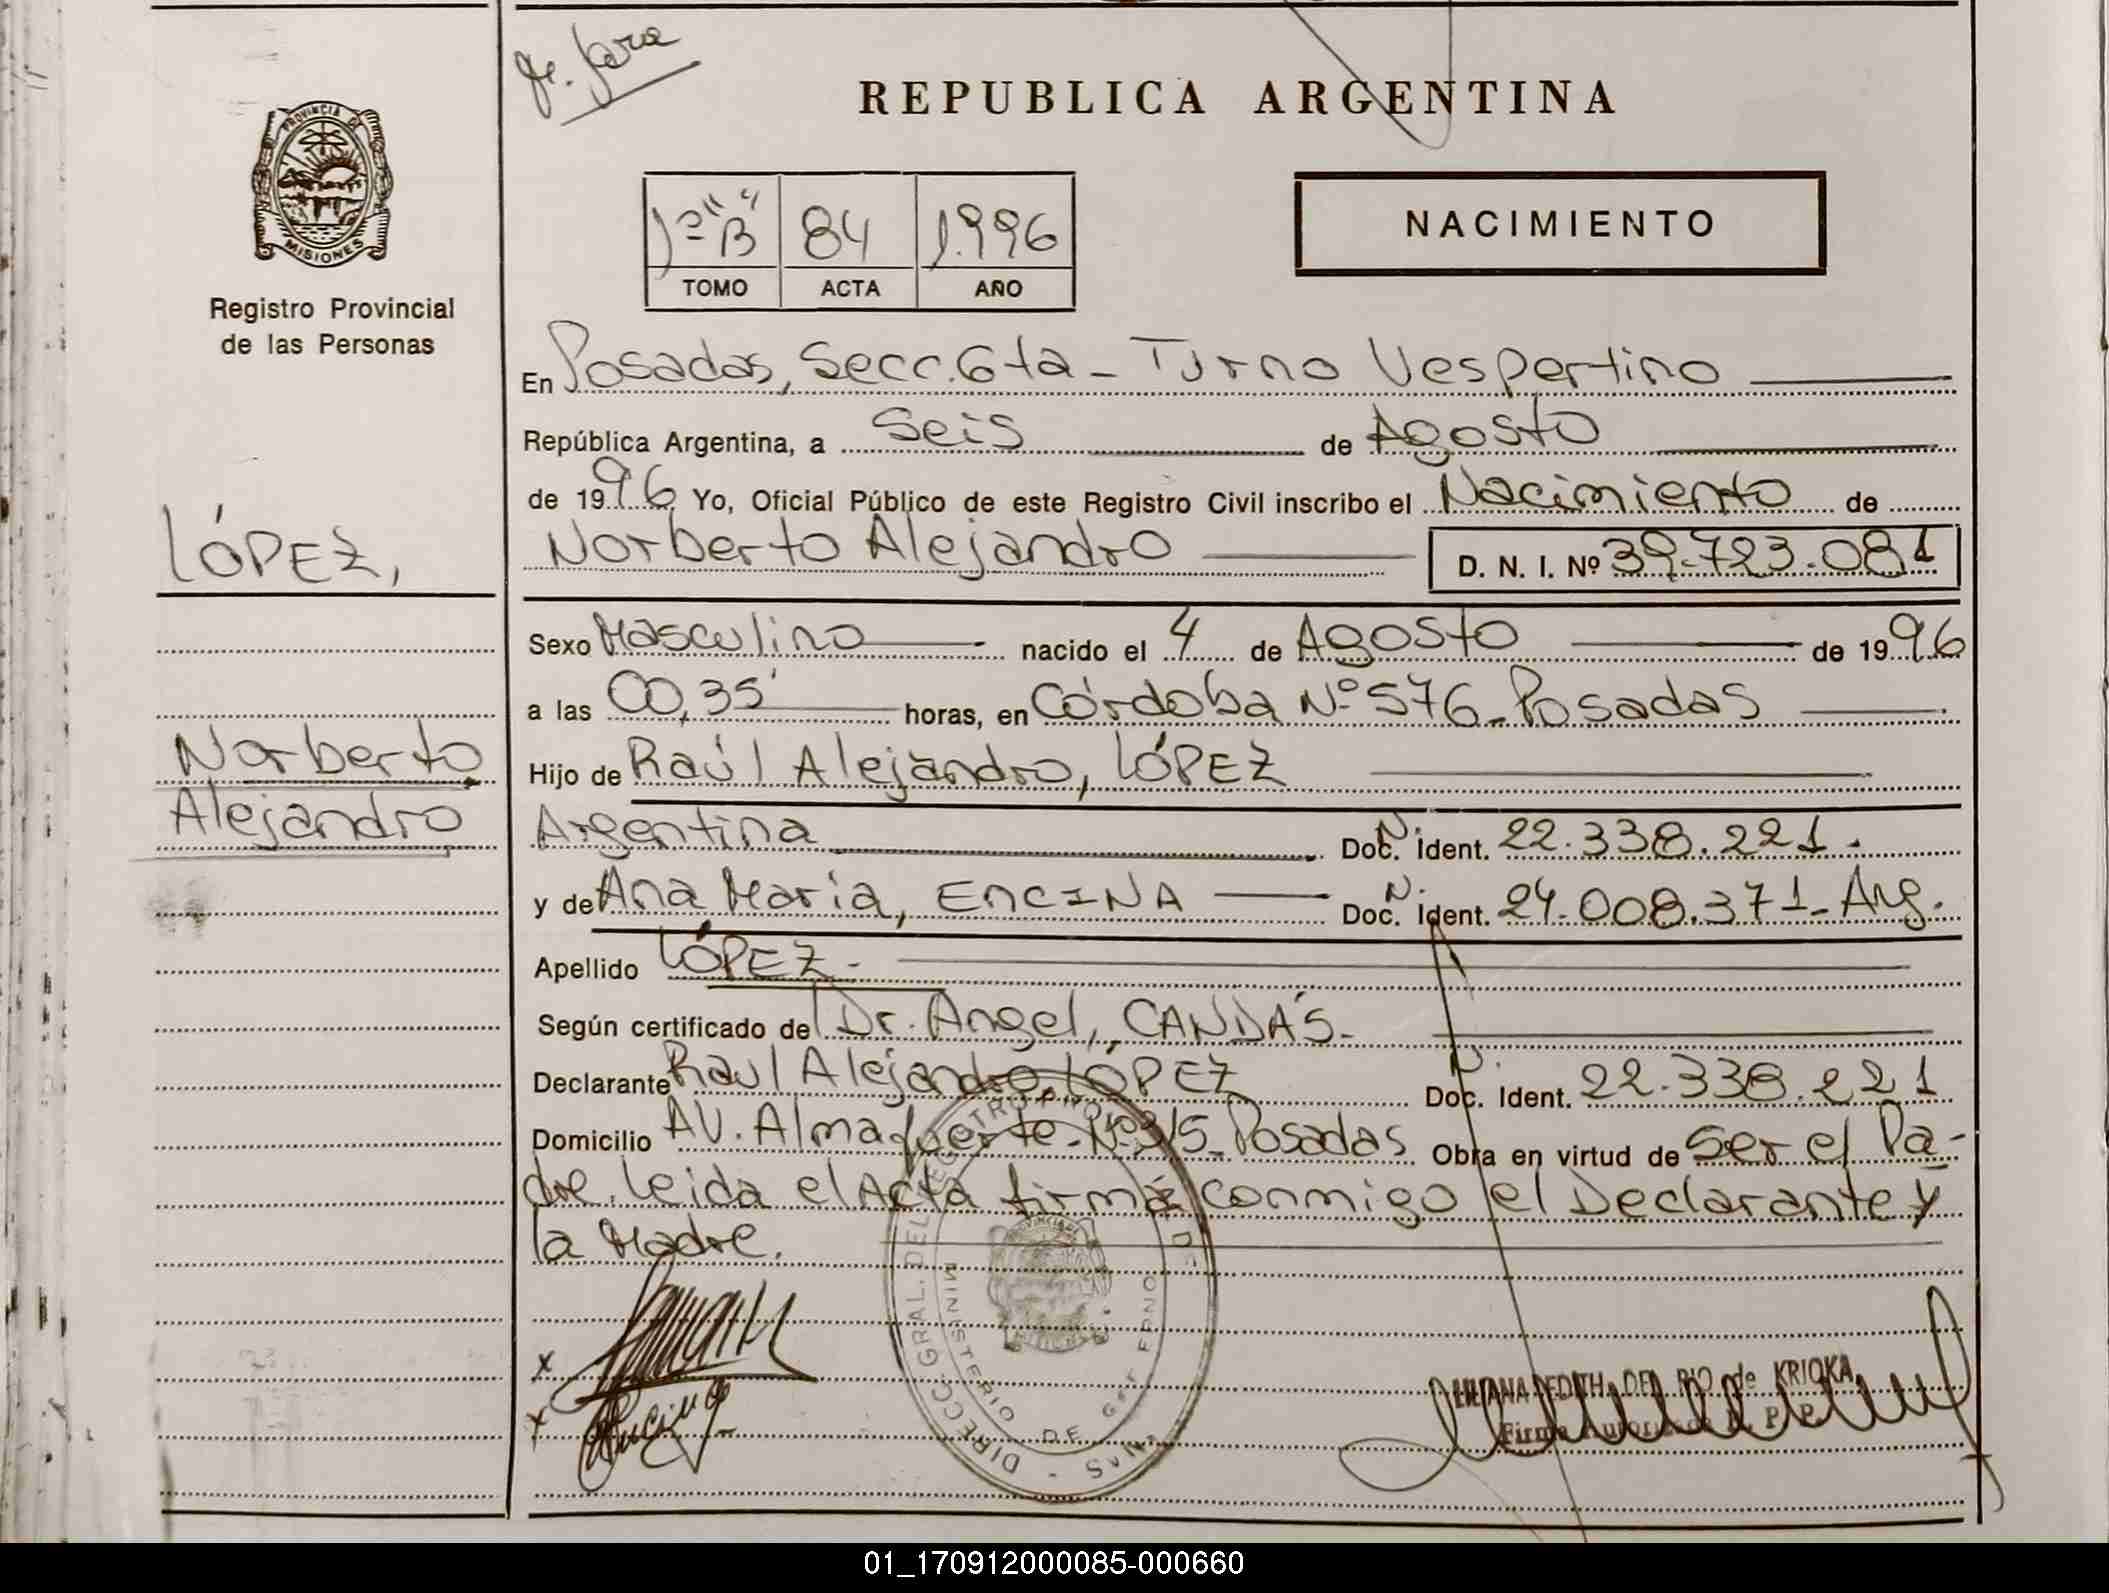 REPUBLICA ARGENTINA
PROVINCIA DE
MISIONES
Registro Provincial
de las Personas
1º "B" 84 1.996
TOMO ACTA AÑO
NACIMIENTO
En Posadas, Secc. 6ta - Turno Vespertino
República Argentina, a Seis de Agosto
de 1996 Yo, Oficial Público de este Registro Civil inscribo el Nacimiento de
LÓPEZ,
Norberto Alejandro D. N. I. Nº 39.723.081
Sexo Masculino nacido el 4 de Agosto de 1996
a las 00,35' horas, en Córdoba Nº 576 - Posadas
Norberto
Alejandro
Hijo de Raúl Alejandro, LÓPEZ
Argentina Doc. N. Ident. 22.338.221.
y de Ana Maria, ENCINA Doc. N. Ident. 24.008.371 - Arg.
Apellido LÓPEZ -
Según certificado de Dr. Angel, CANDÁS -
Declarante Raul Alejandro, LÓPEZ Doc. N. Ident. 22.338.221
Domicilio AV. Almafuerte - Nº 315 - Posadas Obra en virtud de Ser el Pa-
dre. leida el Acta firma conmigo el Declarante y
la Madre.
DIRECC. GRAL. DEL REGISTRO
MINISTERIO DE
x
x
LILIANA EDITH DEL RIO de KRIOKA
01_170912000085-000660